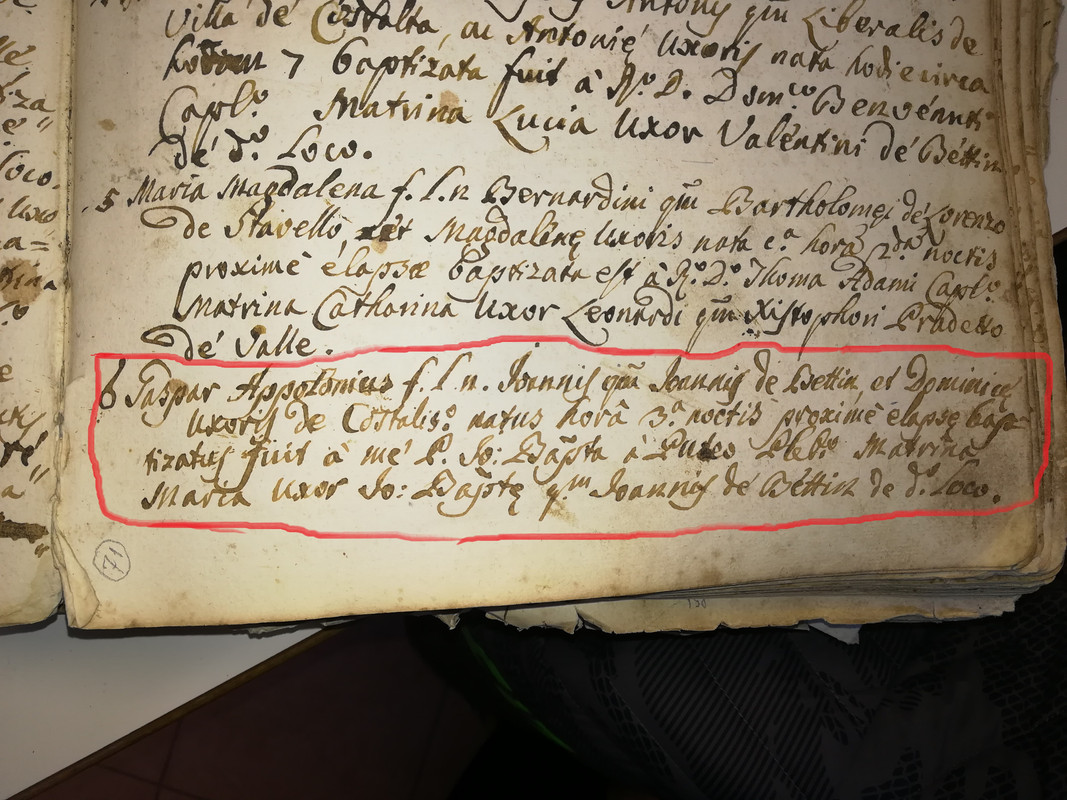 Villa de Costalta, ac Antonię Uxoris nata hodie circa
7 baptizata fuit à R.º D. Dom.co Benvenuti
Capl.º Matrina Lucia Uxor Valentini de Bettin
de d.º Loco.
5 Maria Magdalena f. l. n Bernardini qm Bartholomęi de Lorenzo
de Stavello, et Magdalenę Uxoris nata c.ª horã 2.dã noctis
proximè elapsæ baptizata est à R.º D.º Thoma Adami Capl.º
Matrina Catharina Uxor Leonardi qm Xistophori Pradetto
de Valle.
6 Gaspar Appolonius f. l. n. Joannis qm Joannis de Bettin et Dominicę
Uxoris de Costaliss.º natus horâ 3.ª noctis proximè elapsę bap=
tizatus fuit à me P. Jo: Bapta à Puteo Pleb.º Matrina
Maria Uxor Jo: Baptę q.m Joannis de Bettin de d.º Loco.
71